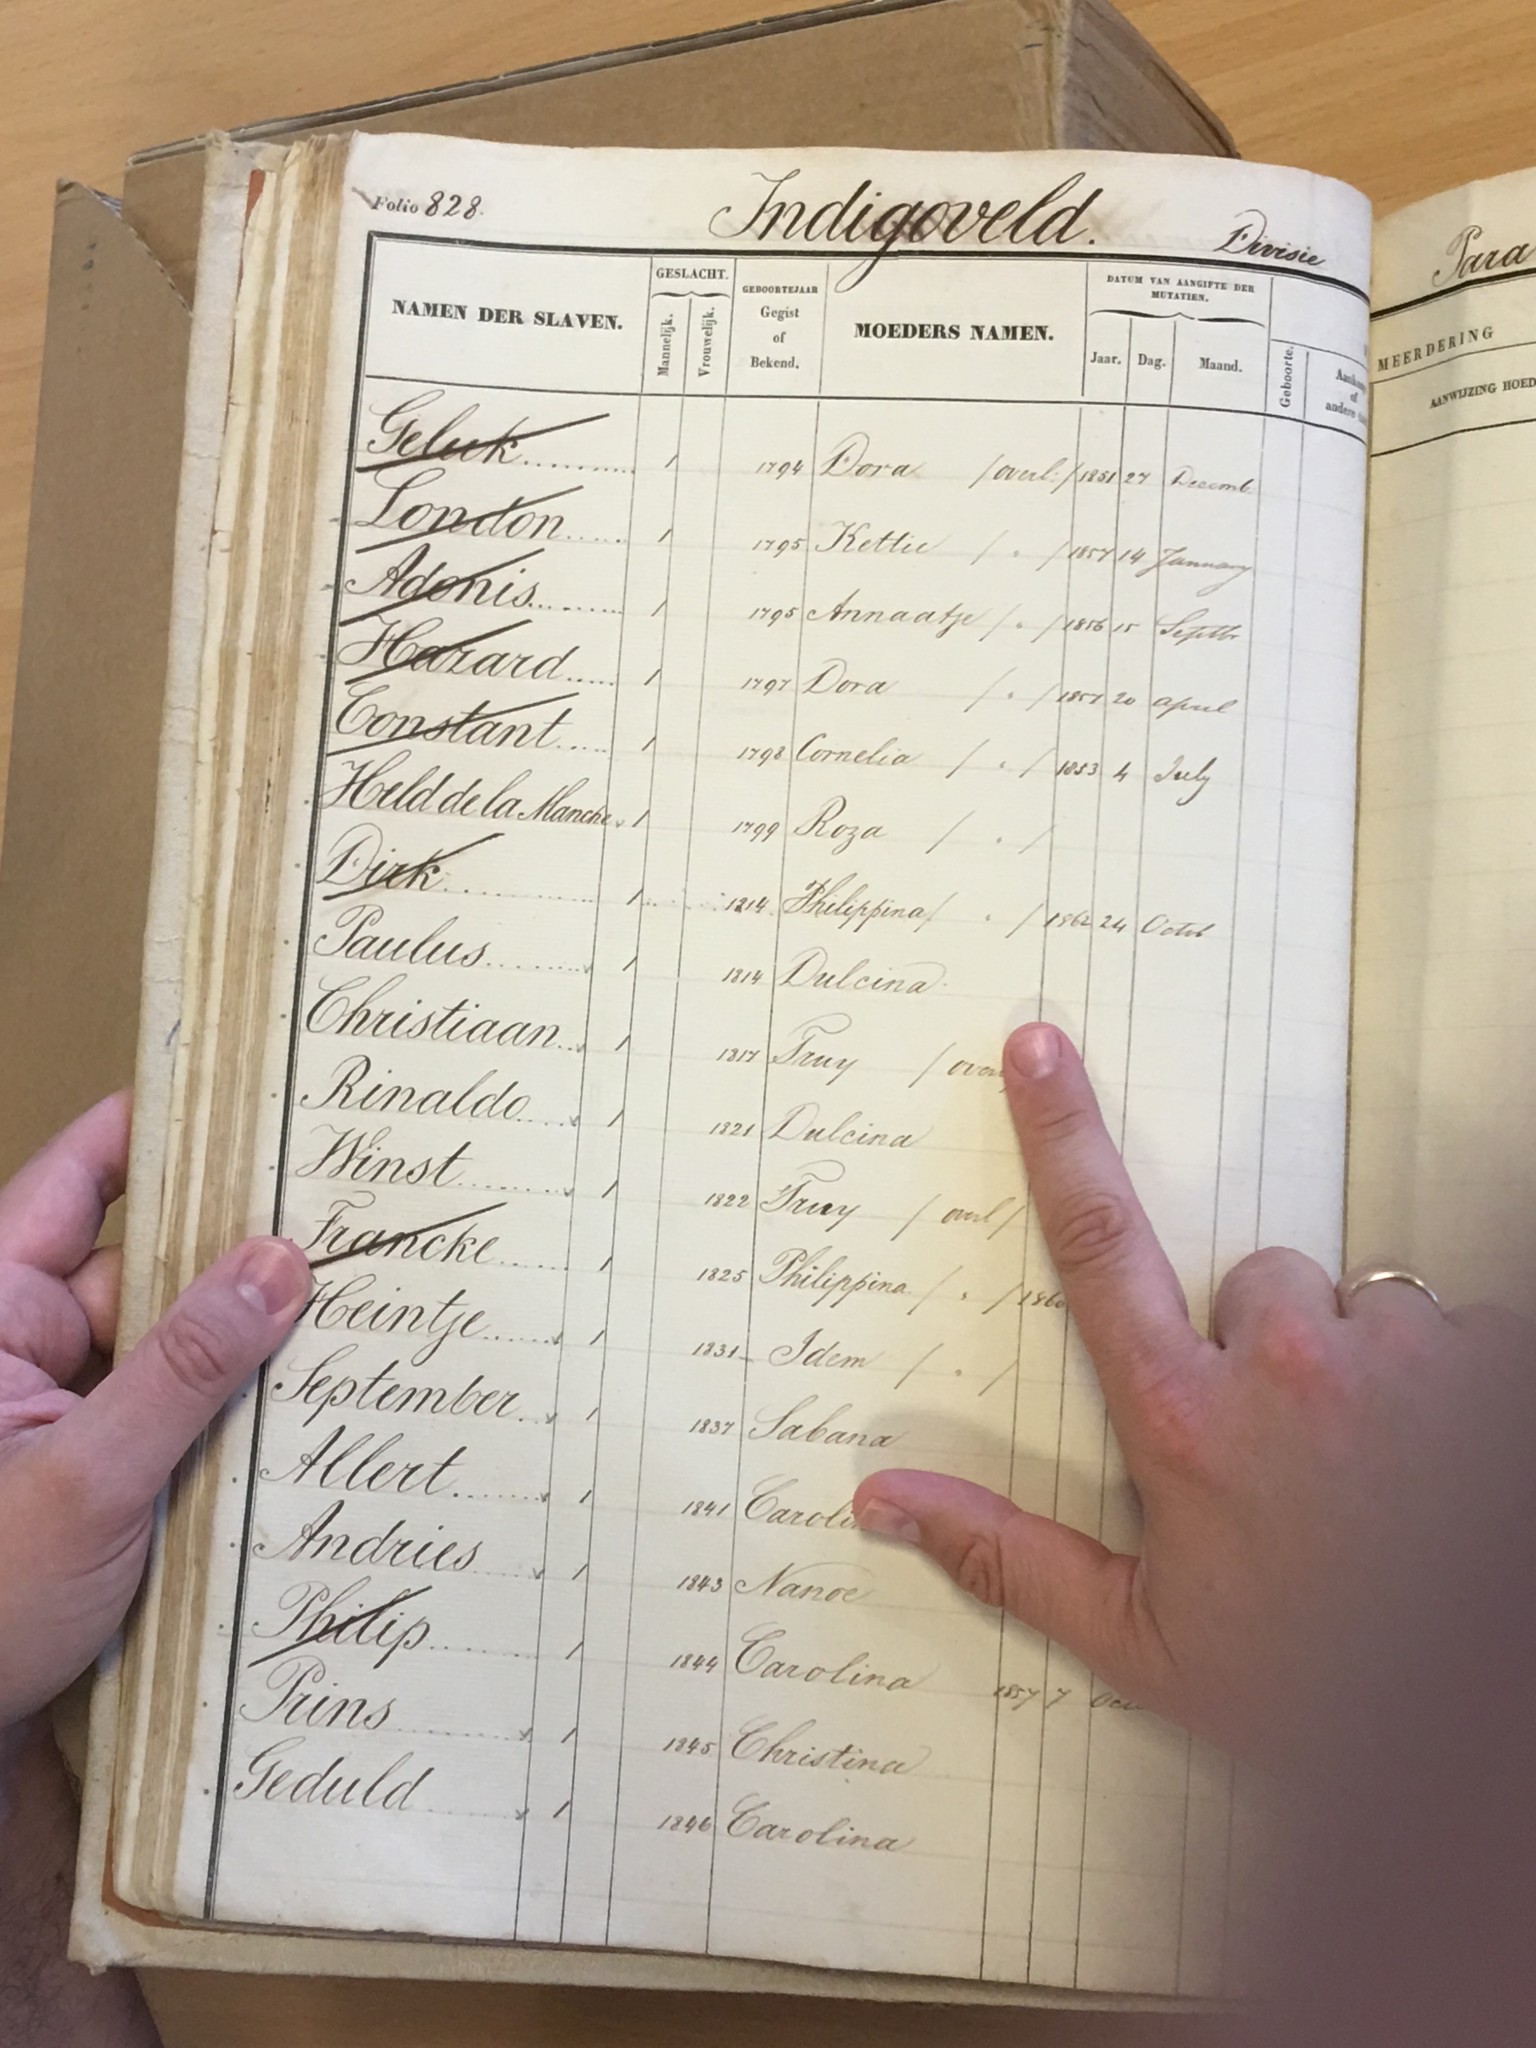 Folio 828.
Indigoveld.
Divisie
Para
NAMEN DER SLAVEN.
GESLACHT.
Mannelijk.
Vrouwelijk.
GEBOORTEJAAR
Gegist
of
Bekend.
MOEDERS NAMEN.
DATUM VAN AANGIFTE DER
MUTATIEN.
Jaar.
Dag.
Maand.
Geboorte.
of
andere
MEERDERING
AANWIJZING
Geluk 1 1794 Dora /overl:/ 1851 27 Decemb
London 1 1795 Kettie / " / 1857 14 January
Adonis 1 1795 Annaatje / " / 1856 15 Septbr
Hazard 1 1797 Dora / " / 1857 20 april
Constant 1 1798 Cornelia / " / 1853 4 July
Held de la Manche 1 1799 Roza / " /
Dirk 1 1814 Philippina / " / 1862 24 Octob
Paulus 1 1814 Dulcina
Christiaan 1 1817 Truy /
Rinaldo 1 1821 Dulcina
Winst 1 1822 Truy / overl /
Francke 1 1825 Philippina / " / 1860
Heintje 1 1831 Idem / " /
September 1 1837 Sabana
Allert 1 1841
Andries 1 1843 Nanoe
Philip 1 1844 Carolina 1857 7
Prins 1 1845 Christina
Geduld 1 1846 Carolina